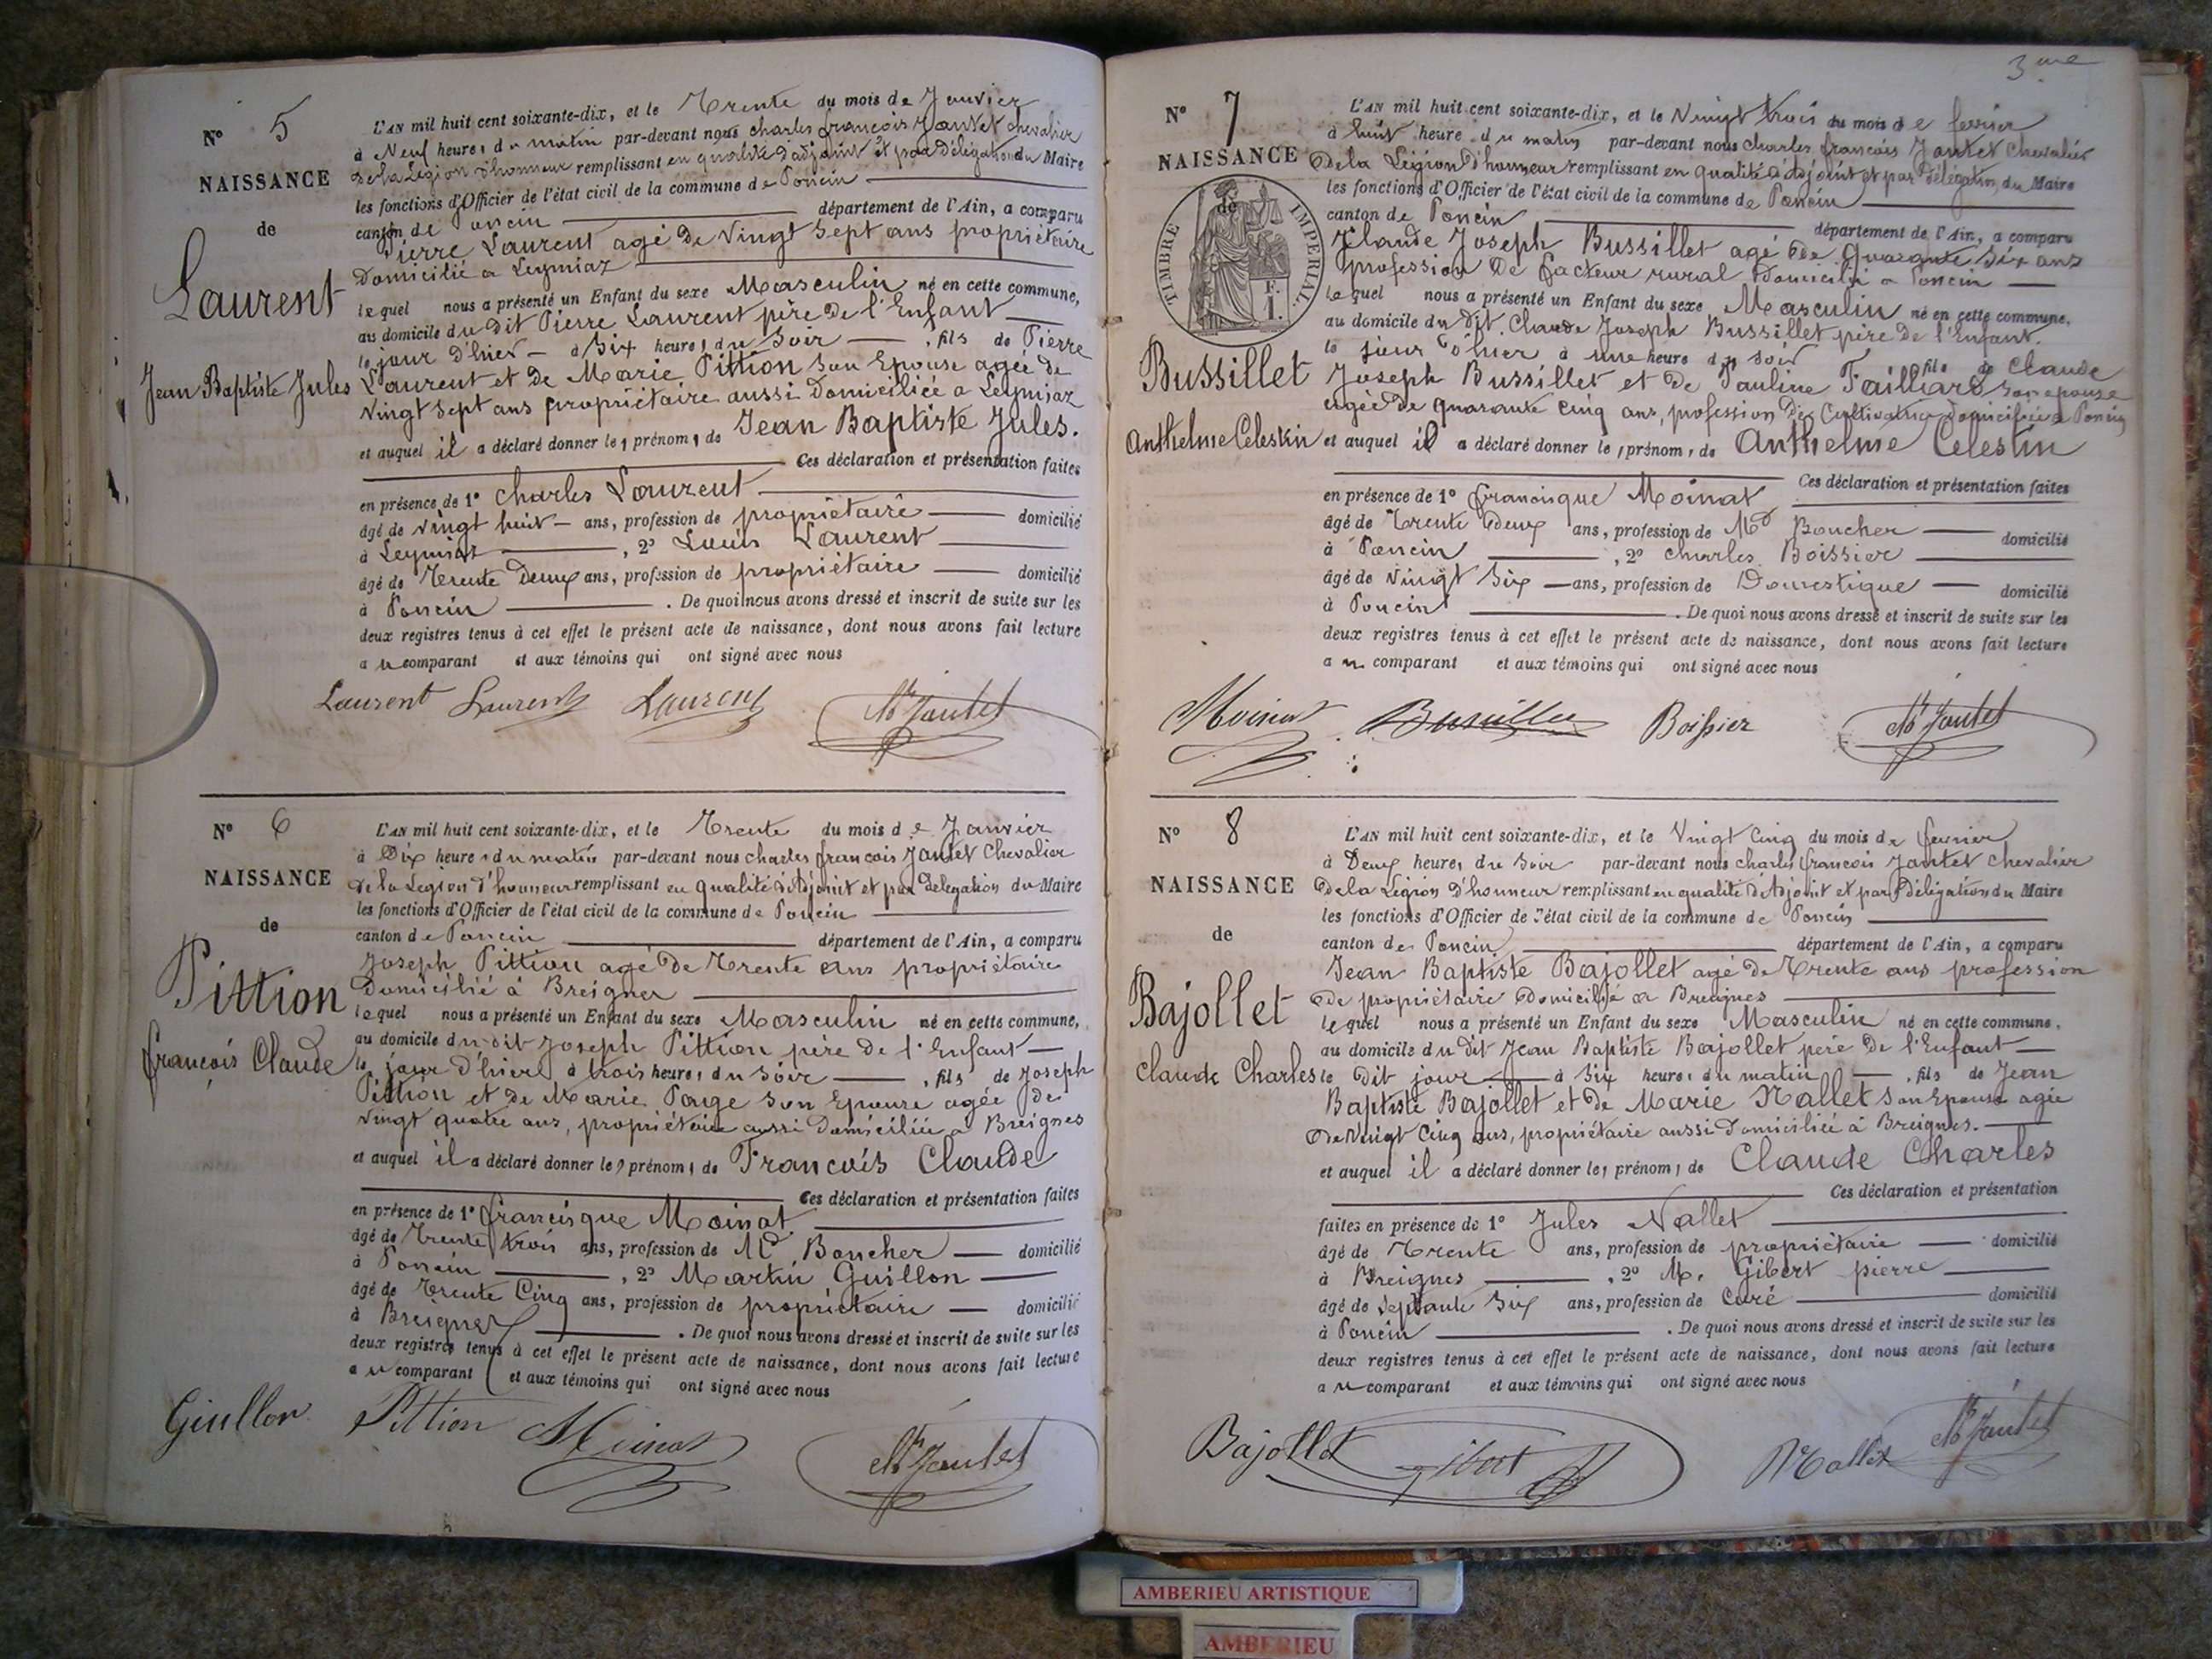 N° 5
NAISSANCE
de
Laurent
Jean Baptiste Jules
L'AN mil huit cent soixante-dix, et le Trente du mois de Janvier
à Neuf heures du matin par-devant nous charles françois Jantet chevalier
de la Légion d'honneur remplissant en qualité d'adjoint et par délégation du Maire
les fonctions d'Officier de l'état civil de la commune de Poncin
canton de Poncin département de l'Ain, a comparu
Pierre Laurent agé de vingt sept ans propriétaire
domicilié a Leymiaz
lequel nous a présenté un Enfant du sexe Masculin né en cette commune,
au domicile du dit Pierre Laurent père de l'Enfant
le jour d'hier à Six heures du Soir, fils de Pierre
Laurent et de Marie Pittion Son Epouse agée de
vingt sept ans propriétaire aussi domiciliée a Leymiaz
et auquel il a déclaré donner les prénoms de Jean Baptiste Jules.
Ces déclaration et présentation faites
en présence de 1° Charles Laurent
âgé de vingt huit ans, profession de propriétaire domicilié
à Leymiaz, 2° Louis Laurent
âgé de Trente Deux ans, profession de propriétaire domicilié
à Poncin. De quoi nous avons dressé et inscrit de suite sur les
deux registres tenus à cet effet le présent acte de naissance, dont nous avons fait lecture
au comparant et aux témoins qui ont signé avec nous
Laurent Laurent Laurent Ch Jantet
N° 6
NAISSANCE
de
Pittion
françois Claude
L'AN mil huit cent soixante-dix, et le Trente du mois de Janvier
à Dix heures du matin par-devant nous charles françois Jantet Chevalier
de la Legion d'honneur remplissant en qualité d'Adjoint et par delegation du Maire
les fonctions d'Officier de l'état civil de la commune de Poncin
canton de Poncin département de l'Ain, a comparu
Joseph Pittion agé de Trente ans propriétaire
Domicilié à Breignes
lequel nous a présenté un Enfant du sexe Masculin né en cette commune,
au domicile du dit Joseph Pittion père de l'Enfant
le jour d'hier à trois heures du Soir, fils de Joseph
Pittion et de Marie Page Son Epouse agée de
vingt quatre ans, propriétaire aussi domiciliée a Breignes
et auquel il a déclaré donner les prénoms de François Claude
Ces déclaration et présentation faites
en présence de 1° francisque Moinat
âgé de Trente trois ans, profession de Md Boucher domicilié
à Poncin, 2° Martin Guillon
âgé de Trente Cinq ans, profession de propriétaire domicilié
à Breignes. De quoi nous avons dressé et inscrit de suite sur les
deux registres tenus à cet effet le présent acte de naissance, dont nous avons fait lecture
au comparant et aux témoins qui ont signé avec nous
Guillon Pittion Moinat Ch Jantet
3me
N° 7
NAISSANCE
de
TIMBRE IMPERIAL
F.
1.
Bussillet
Anthelme Celestin
L'AN mil huit cent soixante-dix, et le Vingt trois du mois de fevrier
à huit heures du matin par-devant nous charles françois Jantet Chevalier
de la Légion d'honneur remplissant en qualité d'Adjoint et par délégation du Maire
les fonctions d'Officier de l'état civil de la commune de Poncin
canton de Poncin département de l'Ain, a comparu
Claude Joseph Bussillet agé de Quarante Six ans
profession de facteur rural domicilié a Poncin
lequel nous a présenté un Enfant du sexe Masculin né en cette commune,
au domicile du dit Claude Joseph Bussillet père de l'Enfant.
le jour d'hier à une heure du soir fils de Claude
Joseph Bussillet et de Pauline Tailliard Son epouse
agée de quarante cinq ans, profession de Cultivatrice domiciliée a Poncin
et auquel il a déclaré donner les prénoms de Anthelme Celestin
Ces déclaration et présentation faites
en présence de 1° francisque Moinat
âgé de Trente deux ans, profession de Md Boucher domicilié
à Poncin, 2° charles Boissier
âgé de vingt Six ans, profession de Domestique domicilié
à Poncin. De quoi nous avons dressé et inscrit de suite sur les
deux registres tenus à cet effet le présent acte de naissance, dont nous avons fait lecture
au comparant et aux témoins qui ont signé avec nous
Moinat Bussillet Boissier Ch Jantet
N° 8
NAISSANCE
de
Bajollet
Claude Charles
L'AN mil huit cent soixante-dix, et le Vingt Cinq du mois de fevrier
à Deux heures du Soir par-devant nous charles françois Jantet chevalier
de la Légion d'honneur remplissant en qualité d'Adjoint et par délégation du Maire
les fonctions d'Officier de l'état civil de la commune de Poncin
canton de Poncin département de l'Ain, a comparu
Jean Baptiste Bajollet agé de Trente ans profession
de propriétaire Domicilié a Breignes
lequel nous a présenté un Enfant du sexe Masculin né en cette commune,
au domicile du dit Jean Baptiste Bajollet père de l'Enfant
le dit jour à Six heures du matin, fils de Jean
Baptiste Bajollet et de Marie Nallet Son Epouse agée
de vingt Cinq ans, propriétaire aussi domiciliée à Breignes.
et auquel il a déclaré donner les prénoms de Claude Charles
Ces déclaration et présentation
faites en présence de 1° Jules Nallet
âgé de Trente ans, profession de propriétaire domicilié
à Breignes, 2° M. Gibert pierre
âgé de Septante Six ans, profession de Curé domicilié
à Poncin. De quoi nous avons dressé et inscrit de suite sur les
deux registres tenus à cet effet le présent acte de naissance, dont nous avons fait lecture
au comparant et aux témoins qui ont signé avec nous
Bajollet Gibert Nallet Ch Jantet
AMBERIEU ARTISTIQUE
AMBERIEU